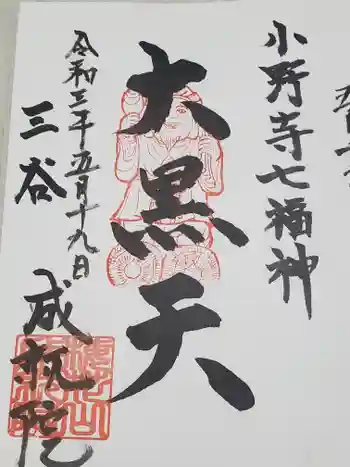 小野寺七福神
大黒天
令和三年五月十九日
三谷